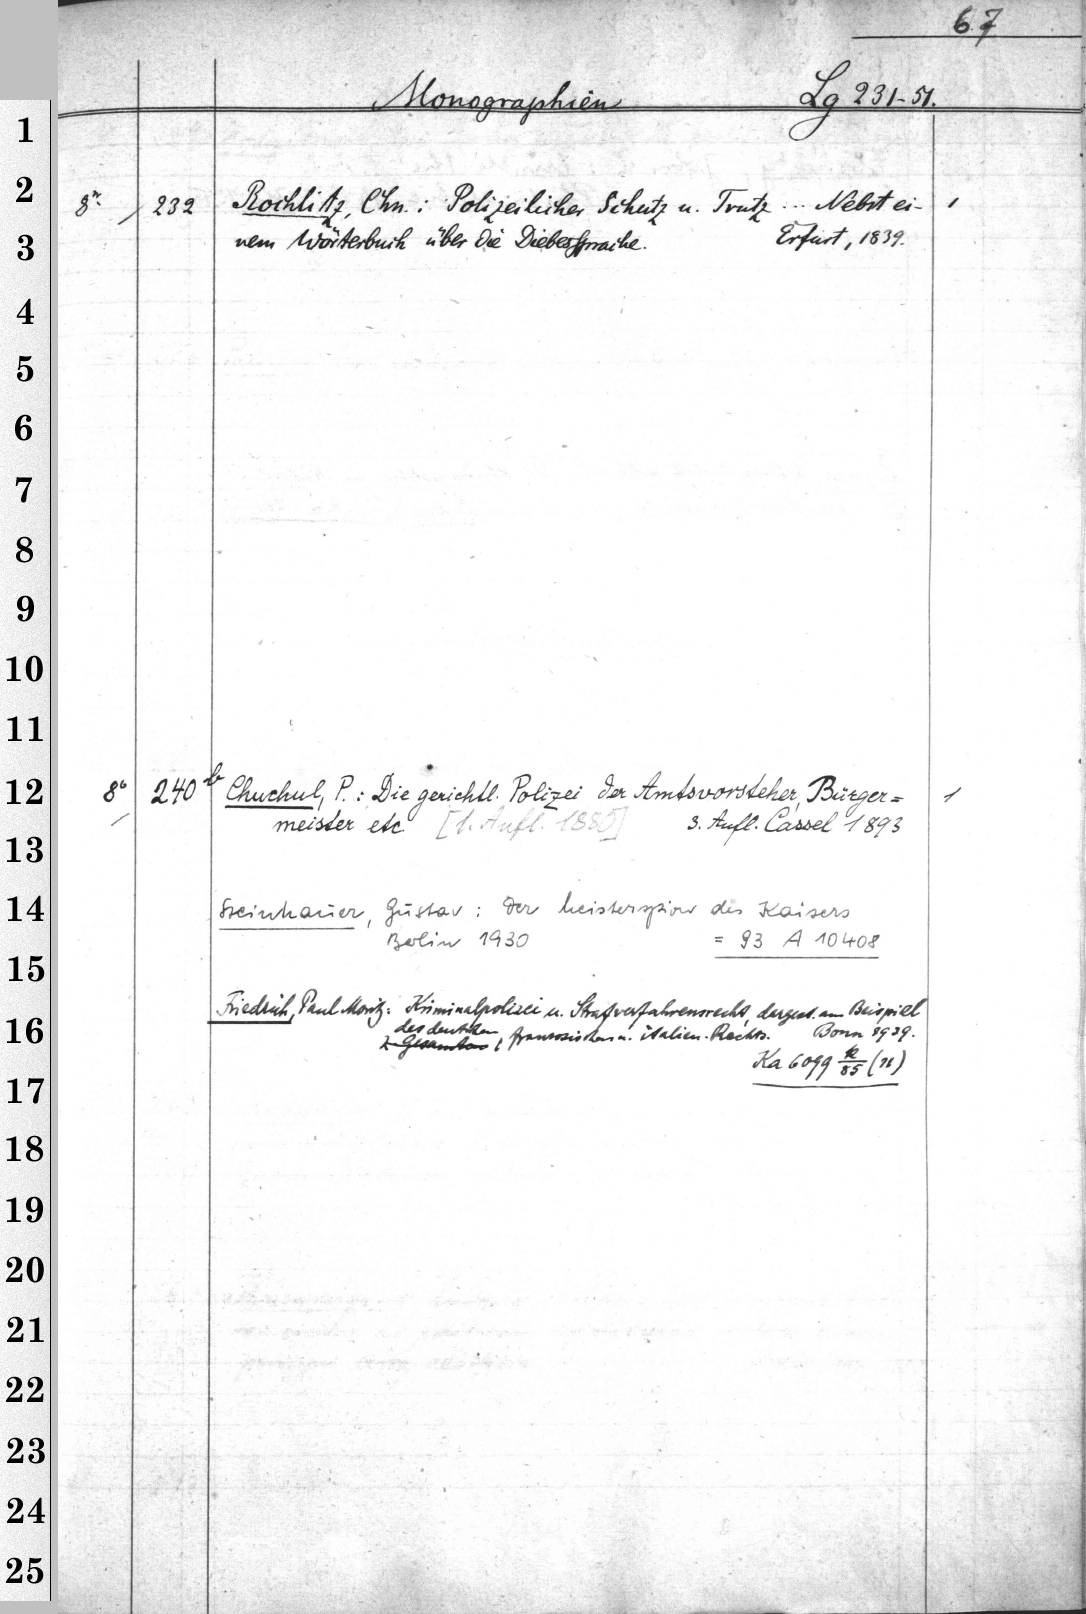 67
Monographien Lg 231-51.
1
2
8° / 232 Rochlitz, Chn.: Polizeilicher Schutz u. Trutz ... Nebst ei- 1
3
nem Wörterbuch über die Diebessprache. Erfurt, 1839.
4
5
6
7
8
9
10
11
12
8° 240 b Chuchul, P.: Die gerichtl. Polizei der Amtsvorsteher, Bürger= 1
meister etc [1. Aufl. 1885] 3. Aufl. Cassel 1893
13
14
Steinhauer, Gustav: Der Meisterspion des Kaisers
Berlin 1930 = 93 A 10408
15
Friedrich, Paul Moritz: Kriminalpolizei u. Strafverfahrensrecht, dargest. am Beispiel
16
des deutschen, französischen u. italien. Rechts. Bonn 1939.
Ka 6099 (n)
17
18
19
20
21
22
23
24
25